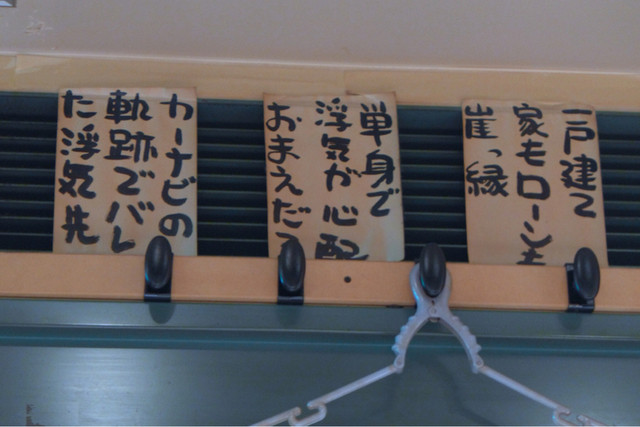 一戸建て
家もローンも
崖っ縁
単身で
浮気が心配
おまえだ
カーナビの
軌跡でバレ
た浮気先